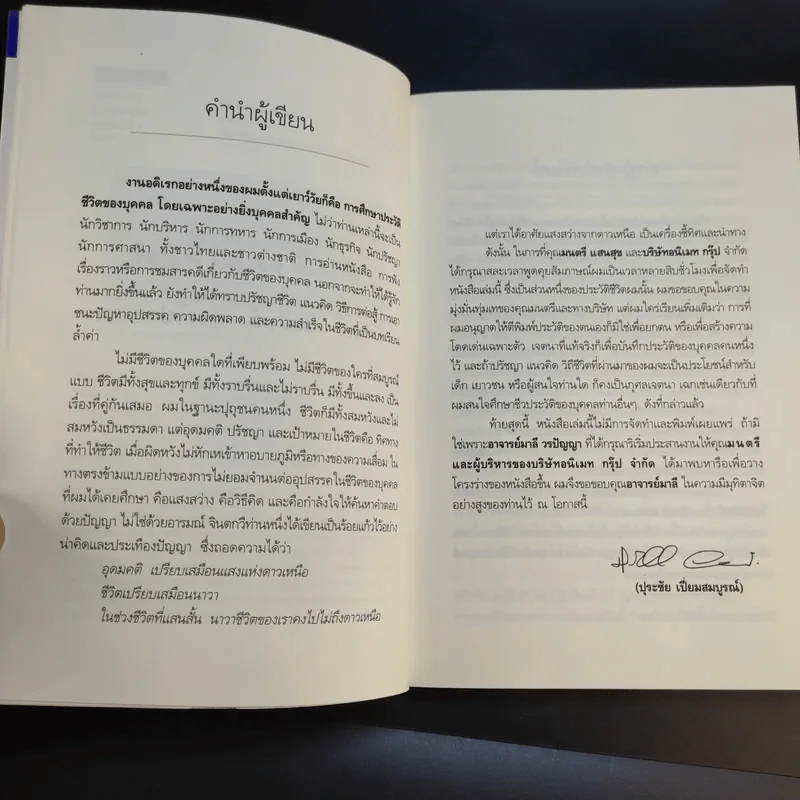 คำนำผู้เขียน
งานอดิเรกอย่างหนึ่งของผมตั้งแต่เยาว์วัยก็คือ การศึกษาประวัติ
ชีวิตของบุคคล โดยเฉพาะอย่างยิ่งบุคคลสำคัญ ไม่ว่าท่านเหล่านี้จะเป็น
นักวิชาการ นักบริหาร นักการทหาร นักการเมือง นักธุรกิจ นักปรัชญา
นักการศาสนา ทั้งชาวไทยและชาวต่างชาติ การอ่านหนังสือ การฟัง
เรื่องราวหรือการชมสารคดีเกี่ยวกับชีวิตของบุคคล นอกจากจะทำให้ได้รู้จัก
ท่านมากยิ่งขึ้นแล้ว ยังทำให้ได้ทราบปรัชญาชีวิต แนวคิด วิธีการต่อสู้ การเอา
ชนะปัญหาอุปสรรค ความผิดพลาด และความสำเร็จในชีวิตที่เป็นบทเรียน
ล้ำค่า
ไม่มีชีวิตของบุคคลใดที่เพียบพร้อม ไม่มีชีวิตของใครที่สมบูรณ์
แบบ ชีวิตมีทั้งสุขและทุกข์ มีทั้งราบรื่นและไม่ราบรื่น มีทั้งขึ้นและลง เป็น
เรื่องที่คู่กันเสมอ ผมในฐานะปุถุชนคนหนึ่ง ชีวิตก็มีทั้งสมหวังและไม่
สมหวังเป็นธรรมดา แต่อุดมคติ ปรัชญา และเป้าหมายในชีวิตคือ ทิศทาง
ที่ทำให้ชีวิต เมื่อผิดหวังไม่หักเหเข้าหาอบายภูมิหรือทางของความเสื่อม ใน
ทางตรงข้ามแบบอย่างของการไม่ยอมจำนนต่ออุปสรรคในชีวิตของบุคคล
ที่ผมได้เคยศึกษา คือแสงสว่าง คือวิธีคิด และคือกำลังใจให้ค้นหาคำตอบ
ด้วยปัญญา ไม่ใช่ด้วยอารมณ์ จินตกวีท่านหนึ่งได้เขียนเป็นร้อยแก้วไว้อย่าง
น่าคิดและประเทืองปัญญา ซึ่งถอดความได้ว่า
อุดมคติ เปรียบเสมือนแสงแห่งดาวเหนือ
ชีวิตเปรียบเสมือนนาวา
ในช่วงชีวิตที่แสนสั้น นาวาชีวิตของเราคงไปไม่ถึงดาวเหนือ
แต่เราได้อาศัยแสงสว่างจากดาวเหนือ เป็นเครื่องชี้ทิศและนำทาง
ดังนั้น ในการที่คุณมนตรี แสนสุข และบริษัทอนิเมท กรุ๊ป จำกัด
ได้กรุณาสละเวลาพูดคุยสัมภาษณ์ผมเป็นเวลาหลายสิบชั่วโมงเพื่อจัดทำ
หนังสือเล่มนี้ ซึ่งเป็นส่วนหนึ่งของประวัติชีวิตผมนั้น ผมขอขอบคุณในความ
มุ่งมั่นทุ่มเทของคุณมนตรีและทางบริษัท แต่ผมใคร่เรียนเพิ่มเติมว่า การที่
ผมอนุญาตให้ตีพิมพ์ประวัติของตนเองก็มิใช่เพื่อยกตน หรือเพื่อสร้างความ
โดดเด่นเฉพาะตัว เจตนาที่แท้จริงก็เพื่อบันทึกประวัติของบุคคลคนหนึ่ง
ไว้ และถ้าปรัชญา แนวคิด วิถีชีวิตที่ผ่านมาของผมจะเป็นประโยชน์สำหรับ
เด็ก เยาวชน หรือผู้สนใจท่านใด ก็คงเป็นกุศลเจตนา เฉกเช่นเดียวกับที่
ผมสนใจศึกษาชีวประวัติของบุคคลท่านอื่นๆ ดังที่กล่าวแล้ว
ท้ายสุดนี้ หนังสือเล่มนี้ไม่มีการจัดทำและพิมพ์เผยแพร่ ถ้ามิ
ใช่เพราะอาจารย์มาลี วรปัญญา ที่ได้กรุณาริเริ่มประสานงานให้คุณมนตรี
และผู้บริหารของบริษัทอนิเมท กรุ๊ป จำกัด ได้มาพบหารือเพื่อวาง
โครงร่างของหนังสือขึ้น ผมจึงขอขอบคุณอาจารย์มาลี ในความมีมุทิตาจิต
อย่างสูงของท่านไว้ ณ โอกาสนี้
(ปุระชัย เปี่ยมสมบูรณ์)